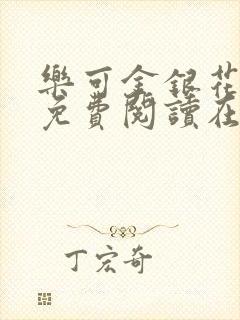 樂可金銀花
免費閱讀在
丁宏奇